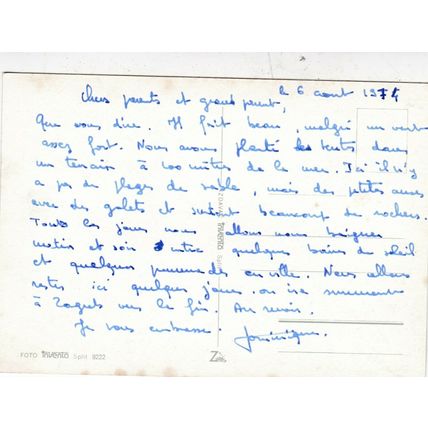 le 6 aout 1974
Chers parents et grand parent,
Que vous dire. Il fait beau, malgré un vent
assez fort. Nous avons planté les tentes dans
un terrain à 100 mètres de la mer. Ici il n'y
a pas de plages de sable, mais des petites anses
avec des galets et surtout beaucoup de rochers.
Tous les jours nous allons nous baigner
matin et soir entre quelques bains de soleil
et quelques promenades en ville. Nous allons
rester ici quelques jours. on ira surement
à Zagreb vers la fin. Au revoir.
Je vous embrasse. Dominique
FOTO TALASATO Split 9222